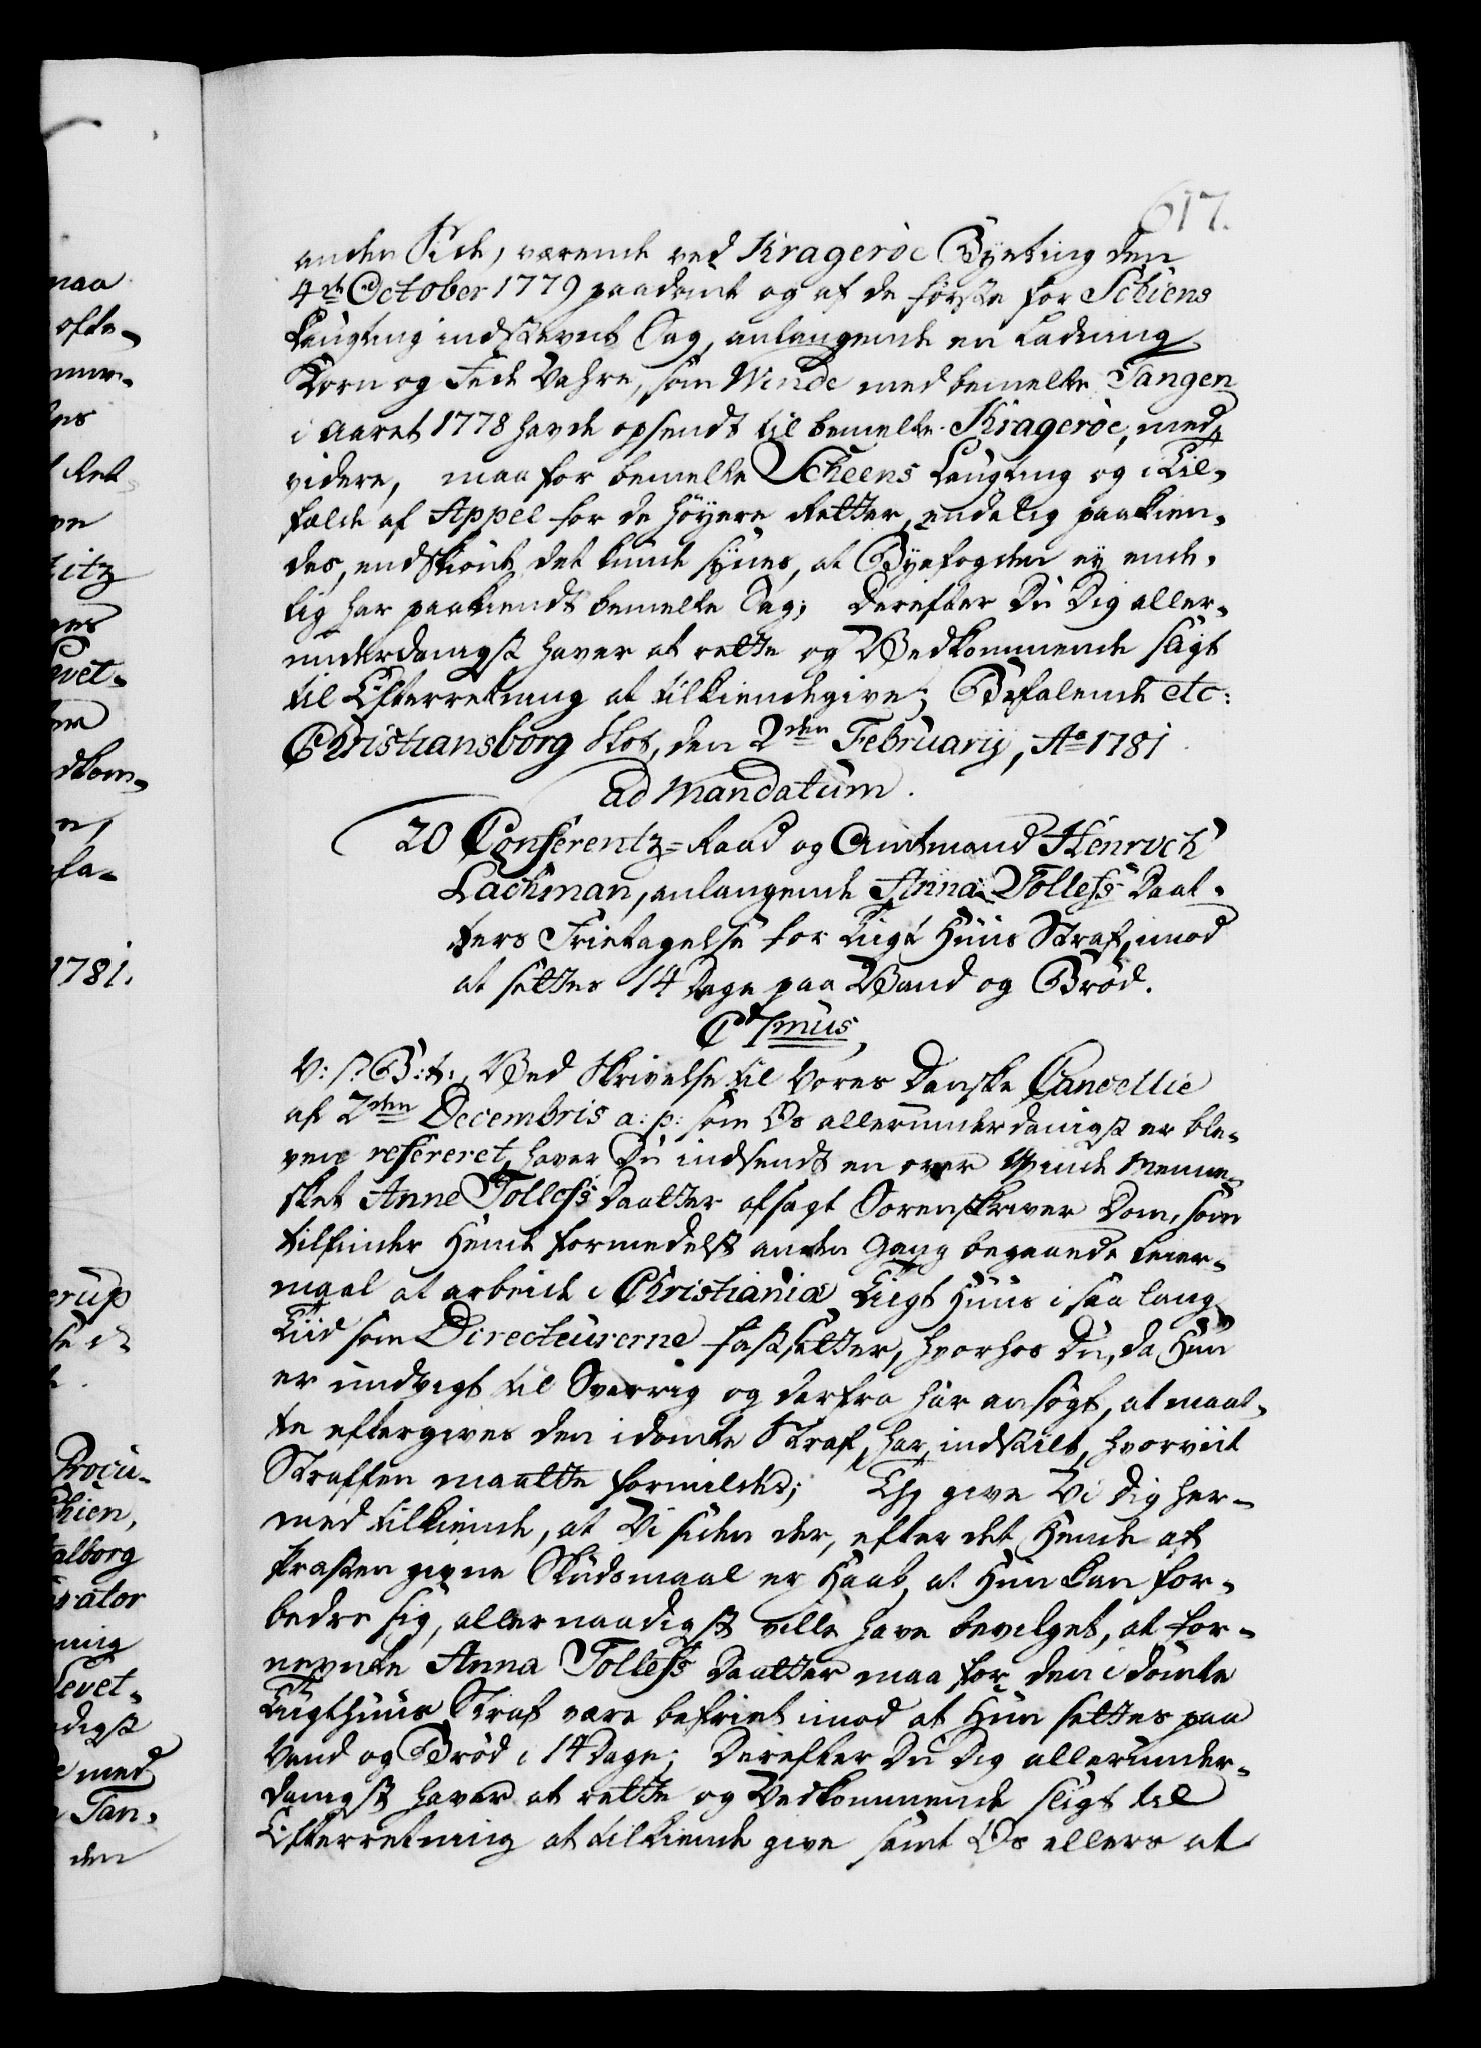 617.
anden Side, værende ved Kragerøe Byeting den
4de October 1779 paadømt og af de første for Schiens
Laugting indstevnt Sag, anlangende en Ladning
Korn og Fede Vahre, som Winde med bemelte Tangen
i Aaret 1778 havde opsendt til bemelte Kragerøe, med
videre, maa for bemelte Scheens Laugting og i Til-
fælde af Appel for de høyere Retter, endelig paakien-
des, endskiønt det kunde synes, at Byefogden ey ende-
lig har paakiendt bemelte Sag; Derefter Du Dig aller-
underdanigst haver at rette og Vedkommende sligt
til Efterretning at tilkiendegive; Befalende etc:
Christiansborg Slot, den 2den Februarij, Ao 1781
ad mandatum.
20 Conferentz-Raad og Amtmand Henrich
Lachman, anlangende Anna Tollefs Daat-
ters Frietagelse for Tugt Huus Straf, imod
at settes 14 Dage paa Vand og Brød.
C 7mus,
V: S: G: t:, Ved Skrivelse til Vores Danske Cancellie
af 2den Decembris a: p: som Os allerunderdanigst er ble-
ven refereret, haver Du indsendt en over Qvinde Menne-
sket Anne Tollefs Daatter afsagt Sorenskriver Dom, som
tilfinder Hende formedelst anden Gang begaaede Leier-
maal at arbeide i Christiania Tugt Huus i saa lang
Tiid som Directeurerne fastsetter, hvorhos Du, da Hun
er undvigt til Sverrig og derfra har ansøgt, at maat-
te eftergives den idømte Straf, har indstilt, hvorviit
Straffen maatte formildes; Thi give Vi Dig her-
med tilkiende, at Vi siden der, efter det Hende af
Præsten givne Skudsmaal er Haab, at Hun kan for-
bedre sig, allernaadigst ville have bevilget, at for-
nevnte Anna Tollefs Daatter maa for den idømte
Tugthuus Straf være befriet imod at Hun settes paa
Vand og Brød i 14 Dage; Derefter Du Dig allerunder-
danigst haver at rette og Vedkommende sligt til
Efterretning at tilkiende give samt Os ellers at